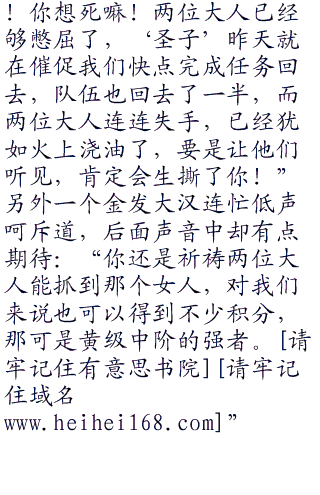 ！你想死嘛！两位大人已经
够憋屈了，‘圣子’昨天就
在催促我们快点完成任务回
去，队伍也回去了一半，而
两位大人连连失手，已经犹
如火上浇油了，要是让他们
听见，肯定会生撕了你！”
另外一个金发大汉连忙低声
呵斥道，后面声音中却有点
期待：“你还是祈祷两位大
人能抓到那个女人，对我们
来说也可以得到不少积分，
那可是黄级中阶的强者。[请
牢记住有意思书院][请牢记
住域名
www.heihei168.com]”